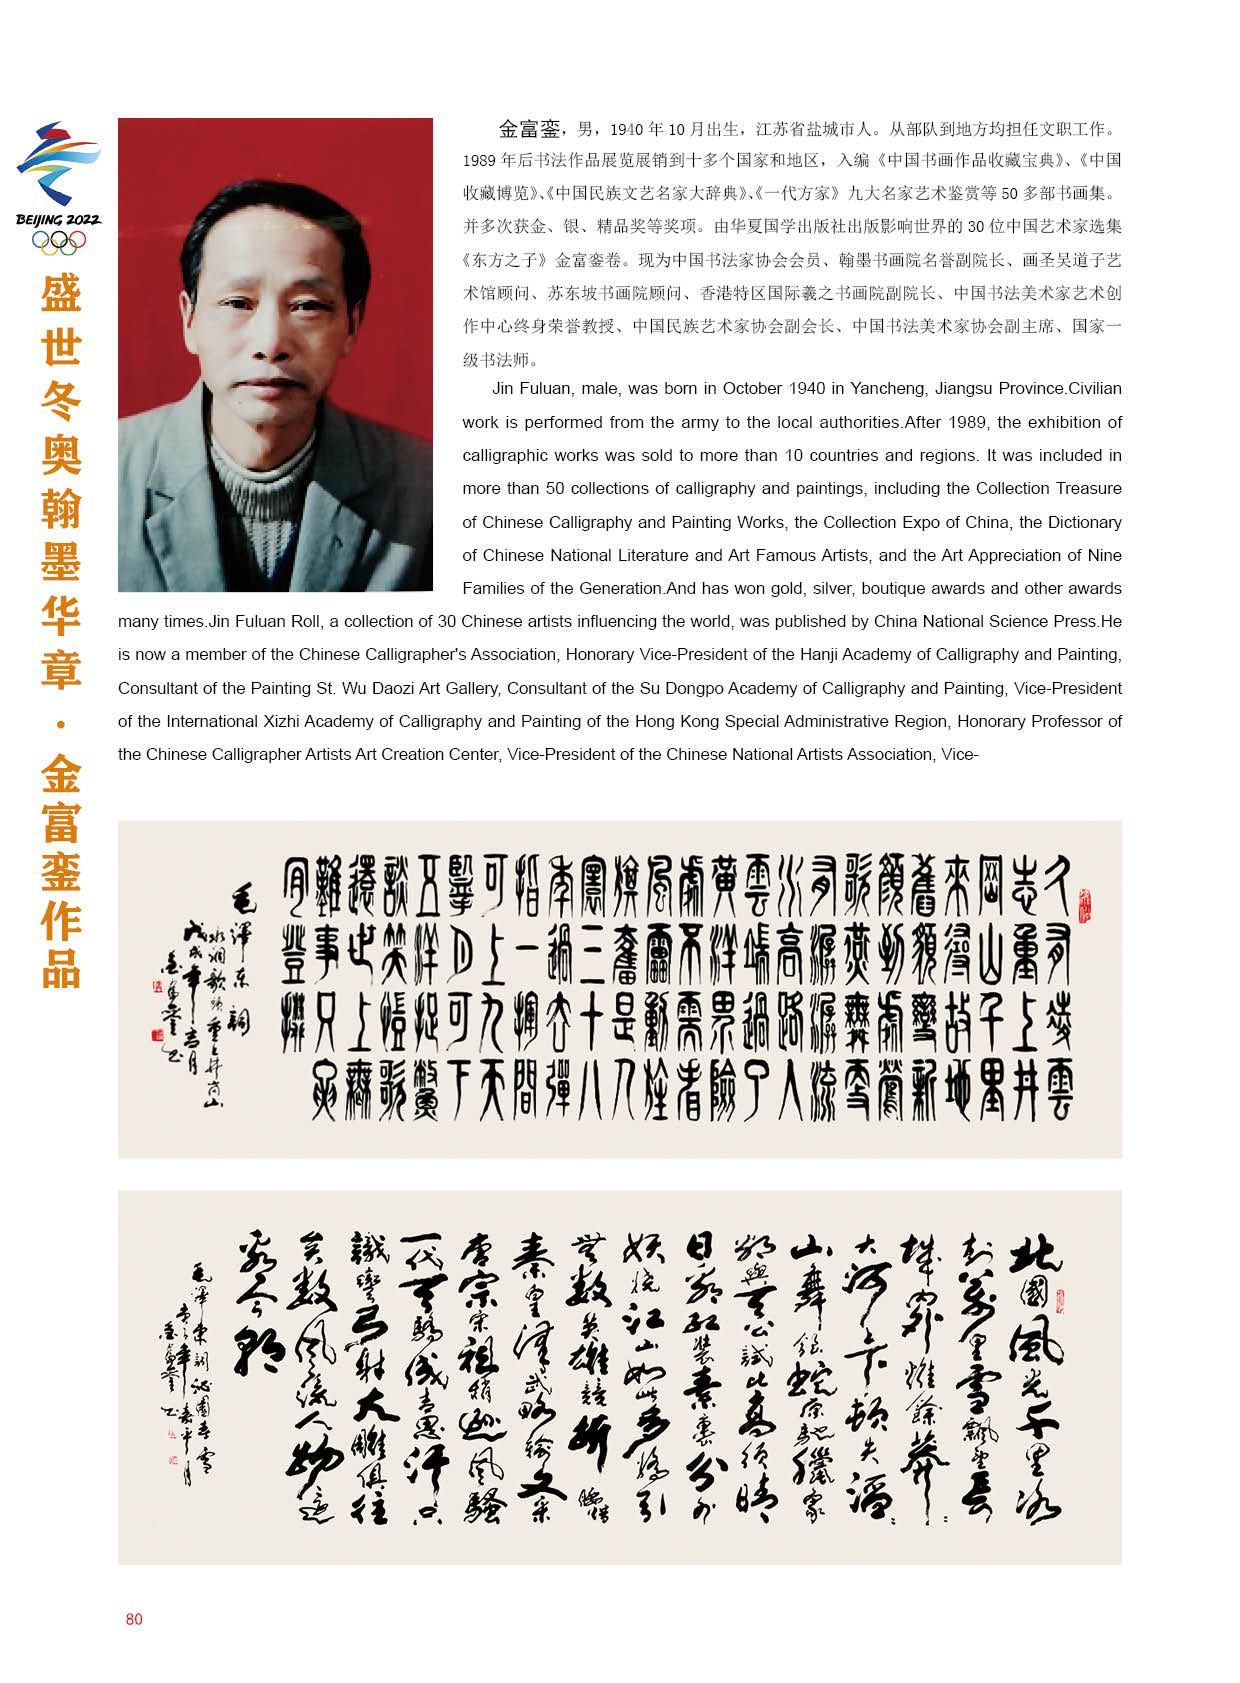 BEIJING 2022
盛世冬奥翰墨华章·金富銮作品
金富銮，男，1940 年 10 月出生，江苏省盐城市人。从部队到地方均担任文职工作。
1989 年后书法作品展览展销到十多个国家和地区，入编《中国书画作品收藏宝典》、《中国
收藏博览》、《中国民族文艺名家大辞典》、《一代方家》九大名家艺术鉴赏等 50 多部书画集。
并多次获金、银、精品奖等奖项。由华夏国学出版社出版影响世界的 30 位中国艺术家选集
《东方之子》金富銮卷。现为中国书法家协会会员、翰墨书画院名誉副院长、画圣吴道子艺
术馆顾问、苏东坡书画院顾问、香港特区国际羲之书画院副院长、中国书法美术家艺术创
作中心终身荣誉教授、中国民族艺术家协会副会长、中国书法美术家协会副主席、国家一
级书法师。
Jin Fuluan, male, was born in October 1940 in Yancheng, Jiangsu Province.Civilian
work is performed from the army to the local authorities.After 1989, the exhibition of
calligraphic works was sold to more than 10 countries and regions. It was included in
more than 50 collections of calligraphy and paintings, including the Collection Treasure
of Chinese Calligraphy and Painting Works, the Collection Expo of China, the Dictionary
of Chinese National Literature and Art Famous Artists, and the Art Appreciation of Nine
Families of the Generation.And has won gold, silver, boutique awards and other awards
many times.Jin Fuluan Roll, a collection of 30 Chinese artists influencing the world, was published by China National Science Press.He
is now a member of the Chinese Calligrapher's Association, Honorary Vice-President of the Hanji Academy of Calligraphy and Painting,
Consultant of the Painting St. Wu Daozi Art Gallery, Consultant of the Su Dongpo Academy of Calligraphy and Painting, Vice-President
of the International Xizhi Academy of Calligraphy and Painting of the Hong Kong Special Administrative Region, Honorary Professor of
the Chinese Calligrapher Artists Art Creation Center, Vice-President of the Chinese National Artists Association, Vice-
久有凌雲
志重上井
岡山千里
來尋故地
舊貌變新
顏到處鶯
歌燕舞更
有潺潺流
水高路入
雲端過了
黃洋界險
處不須看
風雷動旌
旗奮是人
寰三十八
年過去彈
指一揮間
可上九天
攬月可下
五洋捉鱉
談笑凱歌
還世上無
難事只要
肯登攀
毛澤東詞
水調歌頭重上井岡山
戊戌年吉月
金富鑾书
北國風光千里冰
封萬里雪飄望長
城內外惟餘莽ゝ
大河上下頓失滔ゝ
山舞銀蛇原馳蠟象
欲與天公試比高須晴
日看紅裝素裹分外
妖嬈江山如此多嬌引
無數英雄競折腰惜
秦皇漢武略輸文采
唐宗宋祖稍遜風騷
一代天驕成吉思汗只
識彎弓射大雕俱往
矣數風流人物還
看今朝
毛澤東詞沁園春雪
金富鑾书
80